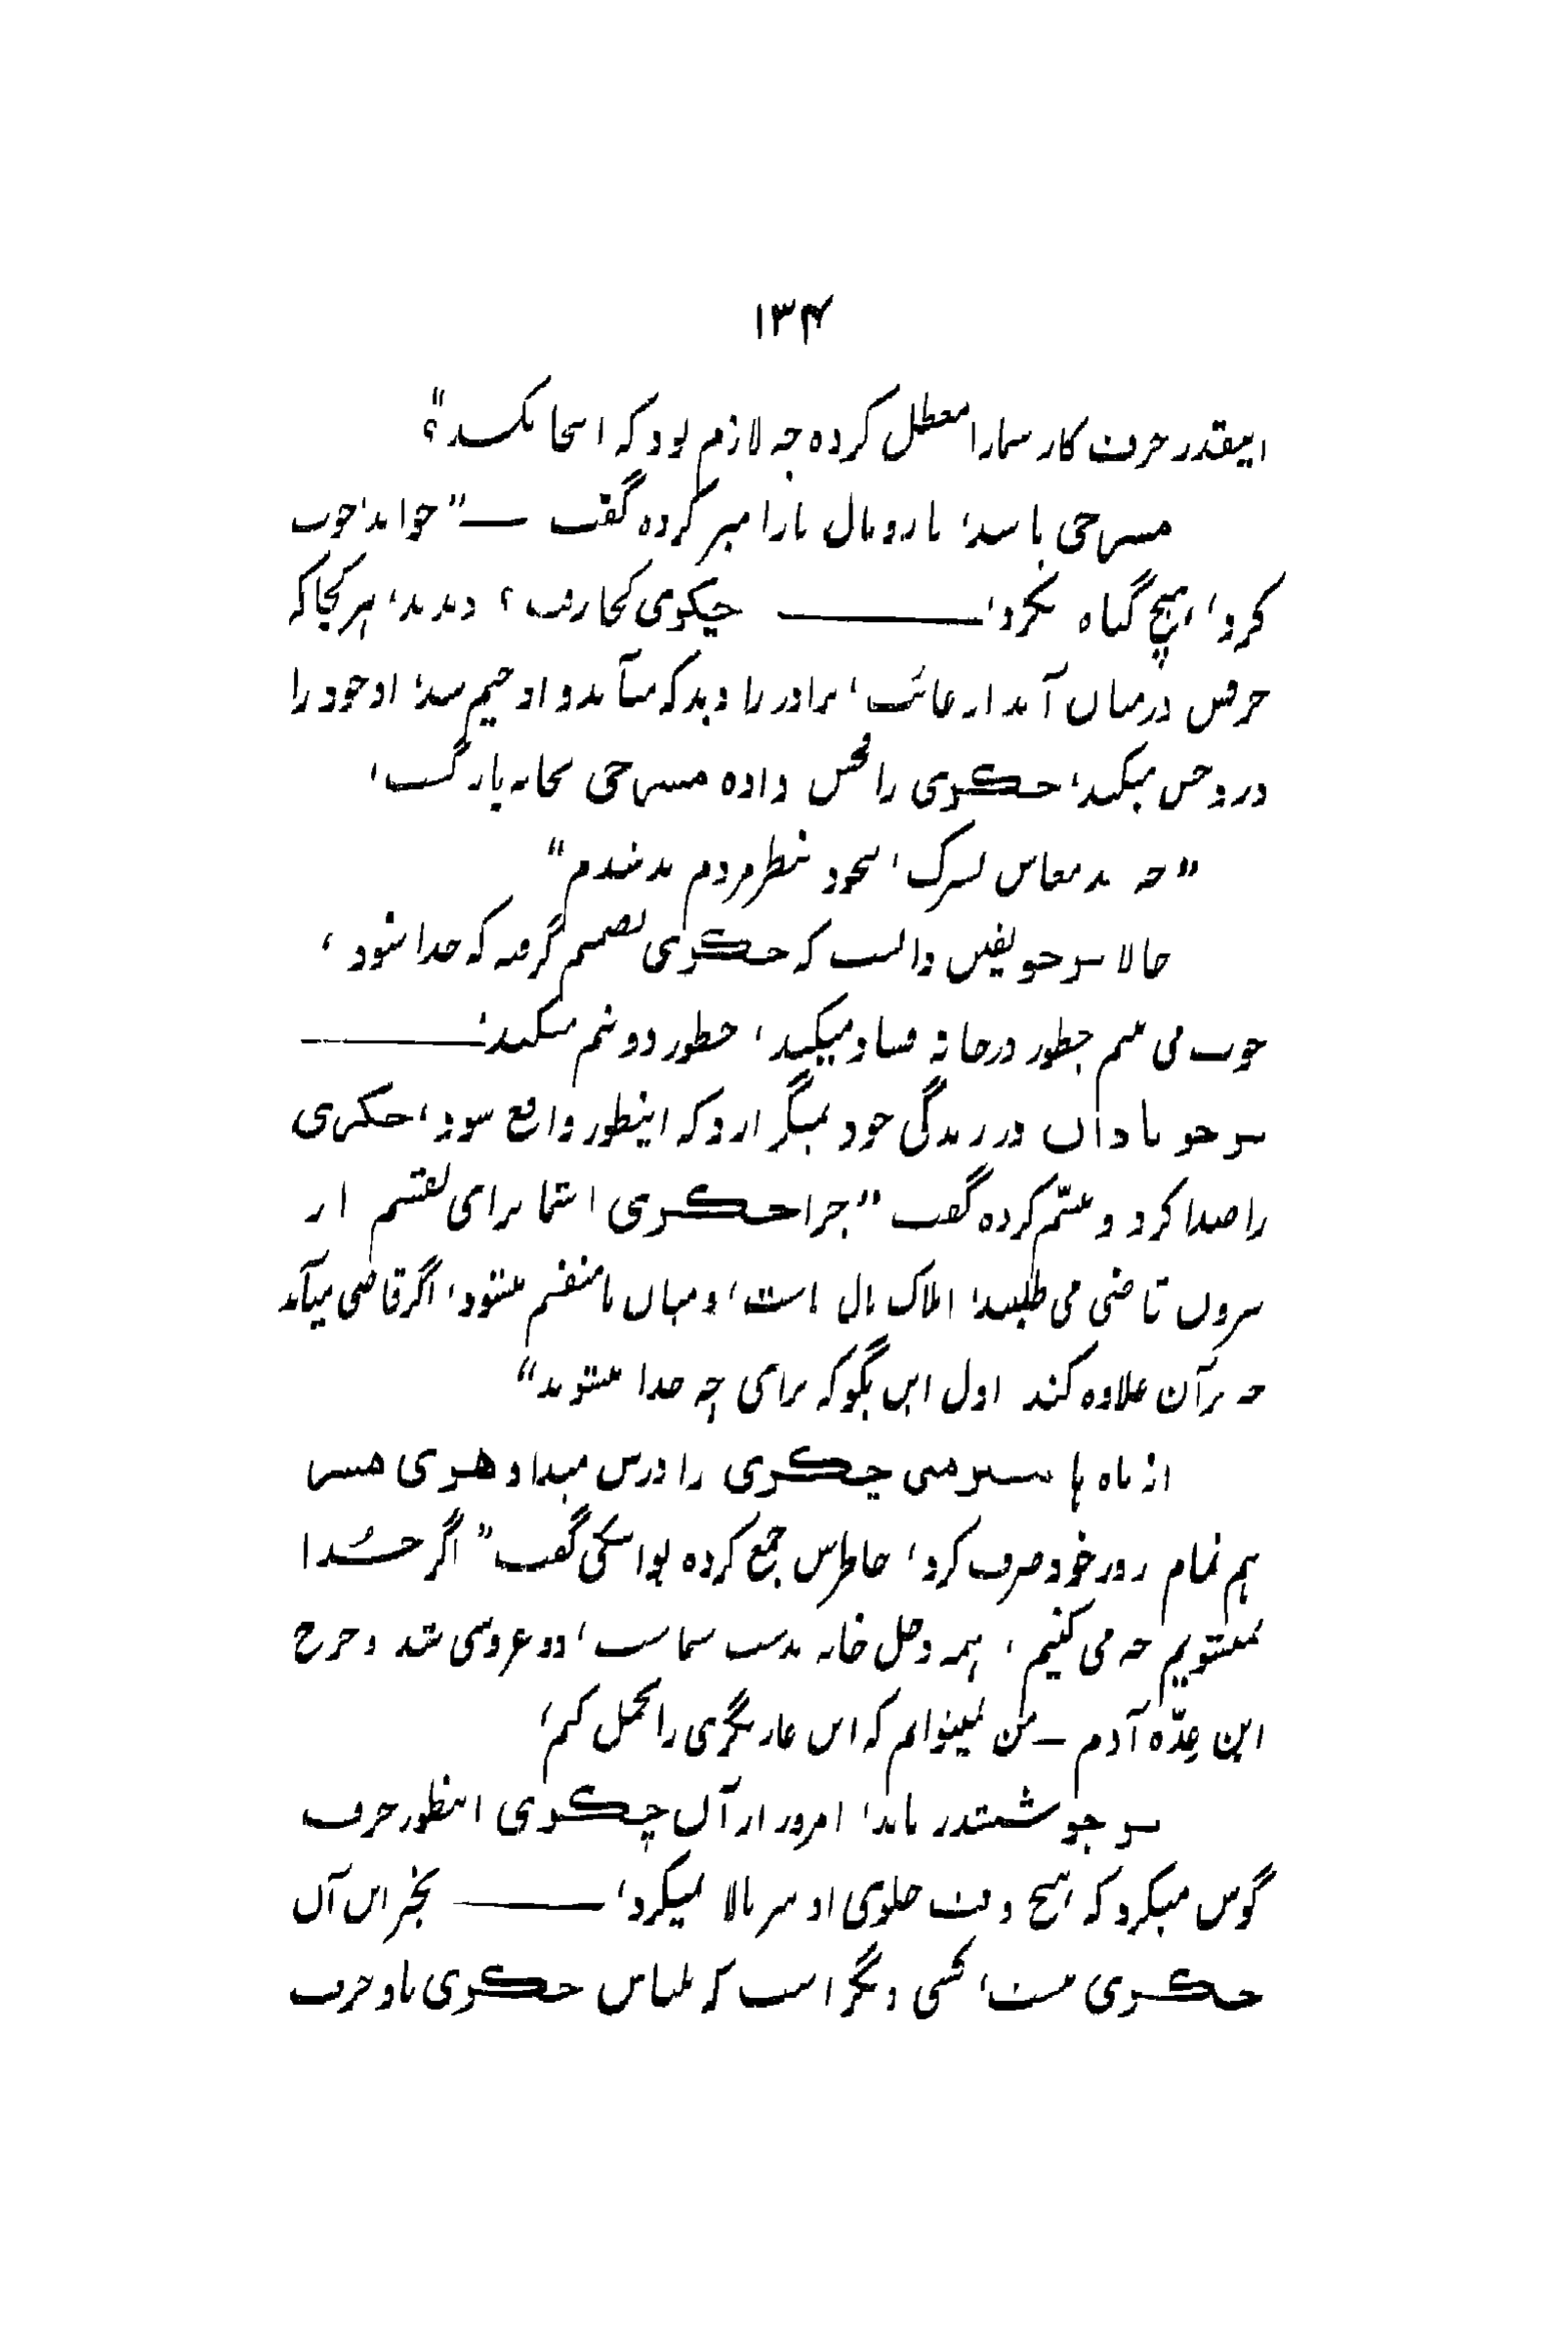 ۱۳۴
اینقدر حرف کار شمارا معطل کرده چه لازم بود که اینجا بکشد"؟
مسرجی پا شد، با رومال بادرا کرده گفت —" خواند، خوب
کرد، هیچ گناه نکرد، ——— چکوی کجا رفت؟ دیدید، هر کجا که
حرفش درمیان آمد از غائب، برادر را دید که میآید و او جیم شد، او خود را
در وحش میکند، چکوی را فحش داده مسرجی بخانه بازگشت،
"چه بدمعاش پسرک، بخود نظر مردم بد شدم"
حالا سرجو یقین دانست که چکوی تصمیم گرفته که جدا شود،
خوب می بینم چطور درخانه فساد میکند، چطور دو نیم میکند، ———
سرجو نادان در زندگی خود نمیگزارد که اینطور واقع شود، چکوی
را صدا کرد و تبسّم کرده گفت "چرا چکوی، شما برای تقسیم از
بیرون قاضی می طلبید، املاک مال ماست، و میان ما منقسم میشود، اگر قاضی میآید
چه بر آن علاوه کند اول این بگو که برای چه جدا میشوید"
از ماه ها سرومنی چکوی را درس میداد هری مسر
هم تمام روز خود صرف کرد، خاطرش جمع کرده یواشکی گفت" اگر جُدا
نمیشویم چه می کنیم، همه دخل خانه بدست شماست، دو عروسی شد و خرج
این عدّه آدم — من نمیتوانم که این غارتگری را تحمل کنم،
سرجو ششدر ماند، امروز از آن چکوی اینطور حرف
گوش میکرد که هیچ وقت جلوی او سر بالا نمیکرد، ——— بخیر این آن
چکوی نیست، کسی دیگر است که بلباس چکوی باو حرف